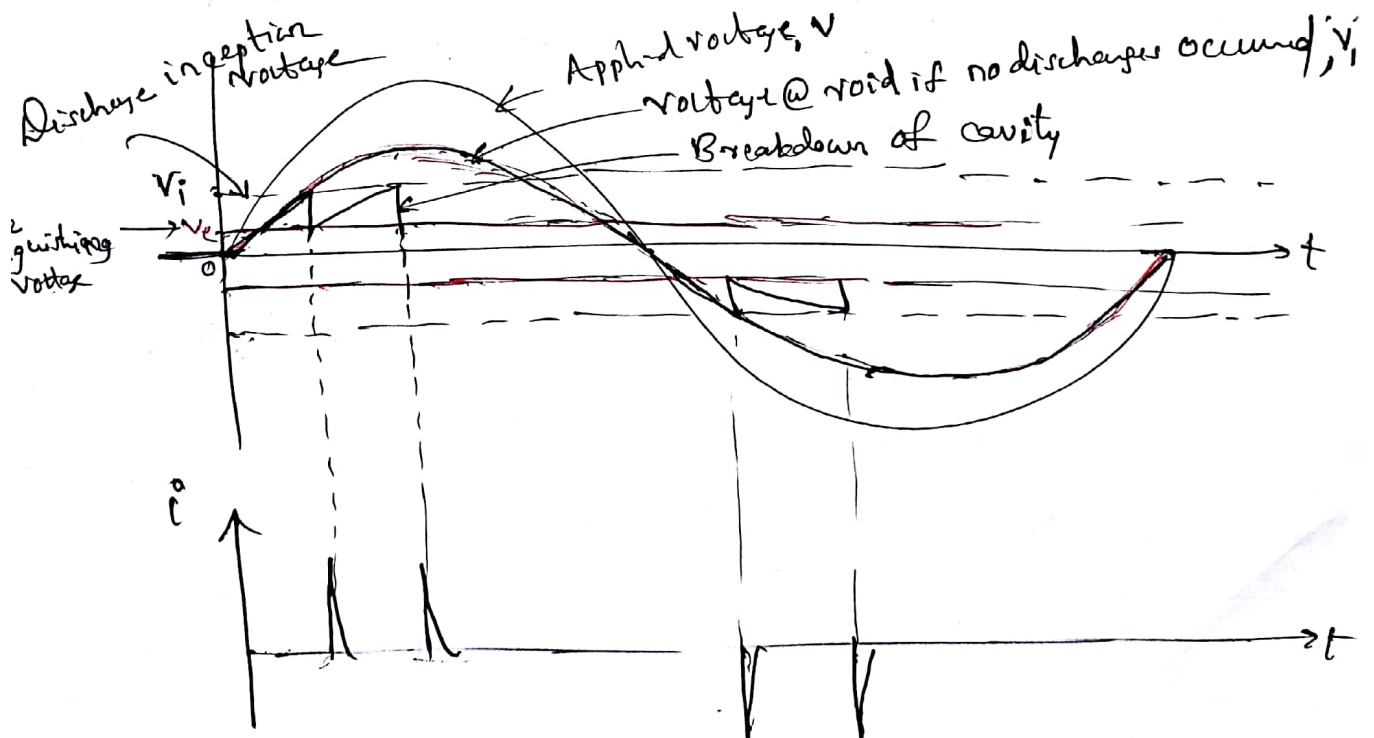 Discharge inception
voltage
Applied voltage, V
voltage @ void if no discharges occurred, V₁
Breakdown of cavity
Vi
Ve
guishing
voltage
0
t
i
t